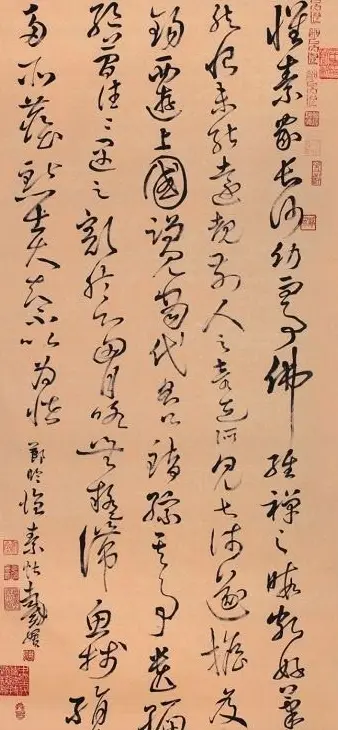 懷素家長沙幼而事佛經禪之暇頗好筆
然恨未能遠覩前人之奇迹所見甚淺遂擔笈
錫西遊上國謁見當代名公錯綜其事遺編
絕簡往往遇之豁然心胸略無疑滯魚牋絹
多所塵點士大夫不以為怪
懷素